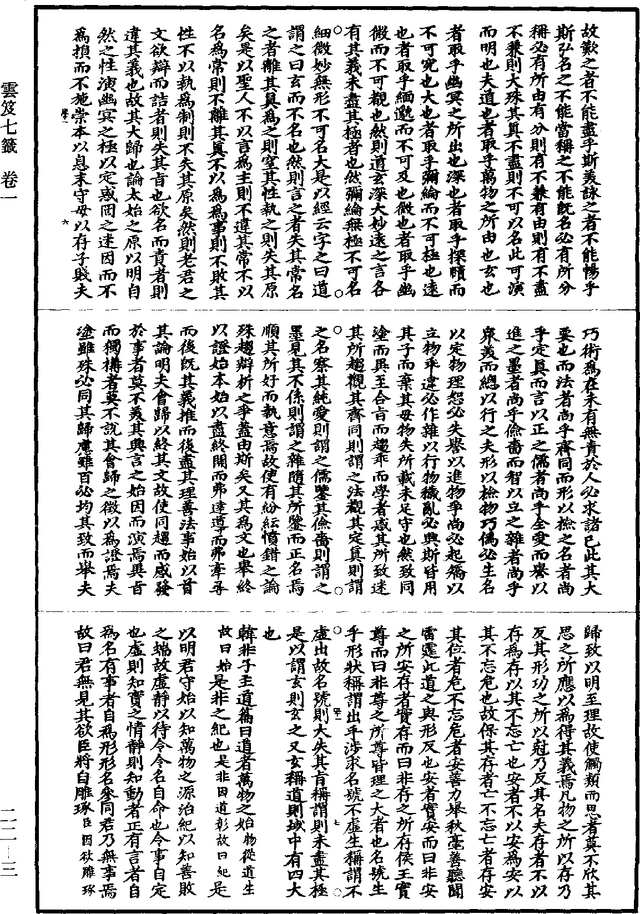 故歎之者不能盡乎斯美詠之者不能暢乎
斯弘名之不能當稱之不能既名必有所分
稱必有所由有分則有不兼有由則有不盡
不兼則大殊其真不盡則不可以名此可演
而明也夫道也者取乎萬物之所由也玄也
者取乎幽冥之所出也深也者取乎探賾而
不可究也大也者取乎彌綸而不可極也遠
也者取乎緬邈而不可及也微也者取乎幽
微而不可覩也然則道玄深大妙遠之言各
有其義未盡其極者也然彌綸無極不可名
細微妙無形不可名大是以經云字之曰道
謂之曰玄而不名也然則言之者失其常名
之者離其真為之則窒其性執之則失其原
矣是以聖人不以言為主則不違其常不以
名為常則不離其真不以為為事則不敗其
性不以執為制則不失其原矣然則老君之
文欲辯而詰者則失其旨也欲名而責者則
違其義也故其大歸也論太始之原以明自
然之性演幽冥之極以定惑罔之迷因而不
為損而不施崇本以息末守母以存子賤夫
巧術為在未有無責於人必求諸己此其大
要也而法者尚乎齊同而形以檢之名者尚
乎定真而言以正之儒者尚乎全愛而譽以
進之墨者尚乎儉嗇而智以立之雜者尚乎
衆美而總以行之夫形以檢物巧偽必生名
以定物理恕必失譽以進物爭尚必起矯以
立物乖違必作雜以行物穢亂必興斯皆用
其子而棄其母物失所載未足守也然致同
塗而異至合旨而趨乖而學者惑其所致迷
其所趨觀其齊同則謂之法觀其定真則謂
之名察其純愛則謂之儒鑒其儉嗇則謂之
墨見其不係則謂之雜隨其所鑒而正名焉
順其所好而執意焉故使有紛紜憤錯之論
殊趨辯析之爭蓋由斯矣又其為文也舉終
以證始本始以盡終開而弗達導而弗牽尋
而後既其義推而後盡其理善法事始以首
其論明夫會歸以終其文故使同趨而感發
於事者莫不美其興言之始因而演焉異旨
而獨搆者莫不說其會歸之徵以為證焉夫
塗雖殊必同其歸慮雖百必均其致而舉夫
歸致以明至理故使觸類而思者莫不欣其
思之所應以為得其義焉凡物之所以存乃
反其形功之所以尅乃反其名夫存者不以
存為存以其不忘亡也安者不以安為安以
其不忘危也故保其存者亡不忘亡者存安
其位者危不忘危者安善力舉秋毫善聽聞
雷霆此道之與形反也安者實安而曰非安
之所安存者實存而曰非存之所存侯王實
尊而曰非尊之所尊皆理之大者也名號生
乎形狀稱謂出乎涉求名號不虛生稱謂不
虛出故名號則大失其旨稱謂則未盡其極
是以謂玄則玄之又玄稱道則域中有四大
也
韓非子主道篇曰道者萬物之始物從道生
故曰始是非之紀也是非因道彰故曰紀是
以明君守始以知萬物之源治紀以知善敗
之端故虛靜以待令令名自命也令事自定
也虛則知實之情靜則知動者正有言者自
為名有事者自為形形名參同君乃無事焉
故曰君無見其欲臣將自雕琢臣因欲雕琢
雲笈七籤 卷一
二二—三